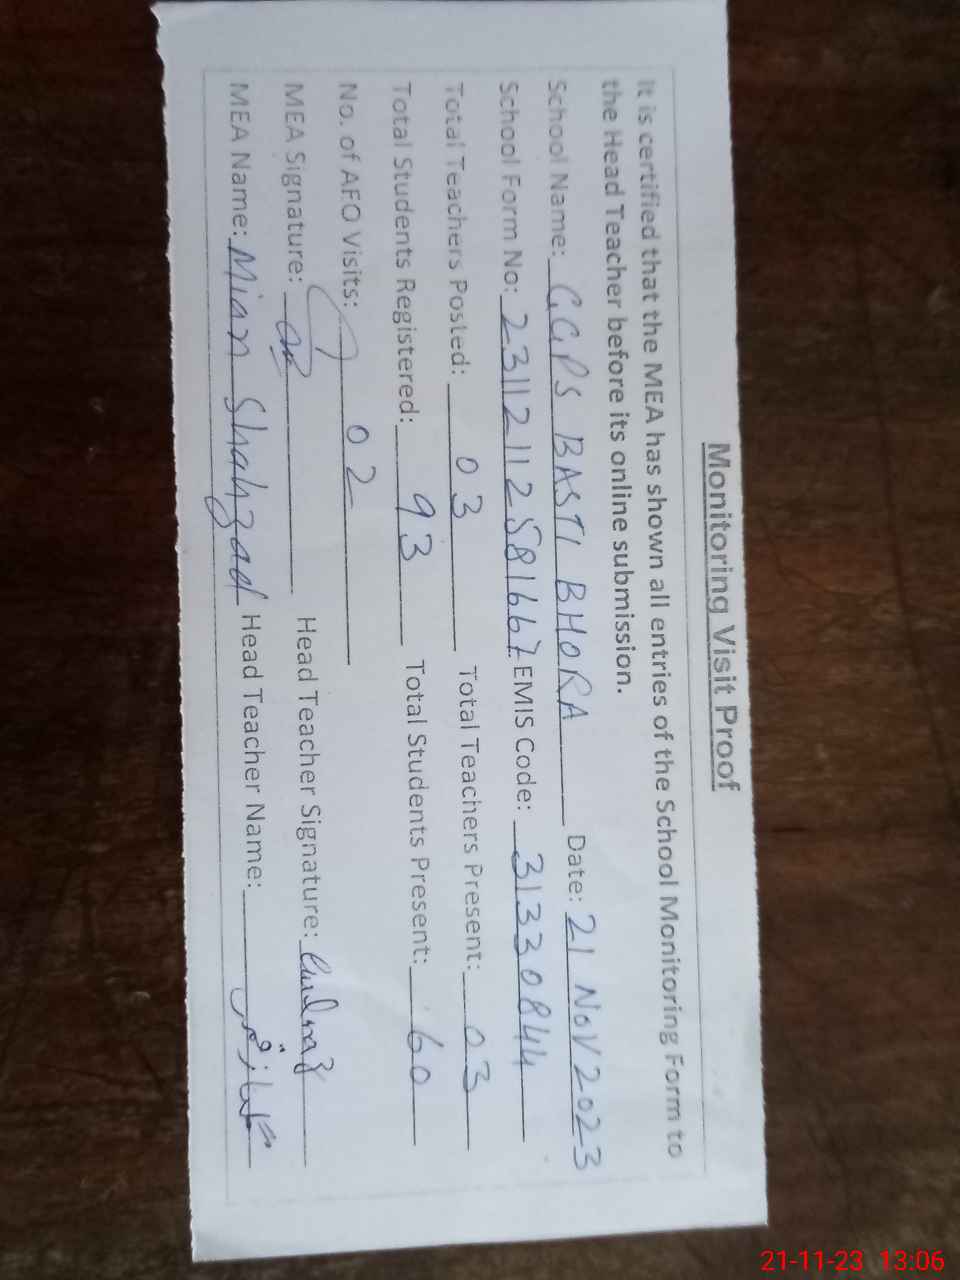 Monitoring Visit Proof
It is certified that the MEA has shown all entries of the School Monitoring Form to
the Head Teacher before its online submission.
School Name: GGPS BASTI BHORA Date: 21 NOV 2023
School Form No: 23112112581667 EMIS Code: 31330844
Total Teachers Posted: 03 Total Teachers Present: 03
Total Students Registered: 93 Total Students Present: 60
No. of AEO Visits: 02
MEA Signature: Head Teacher Signature:
MEA Name: Mian Shahzad Head Teacher Name:
21-11-23 13:06